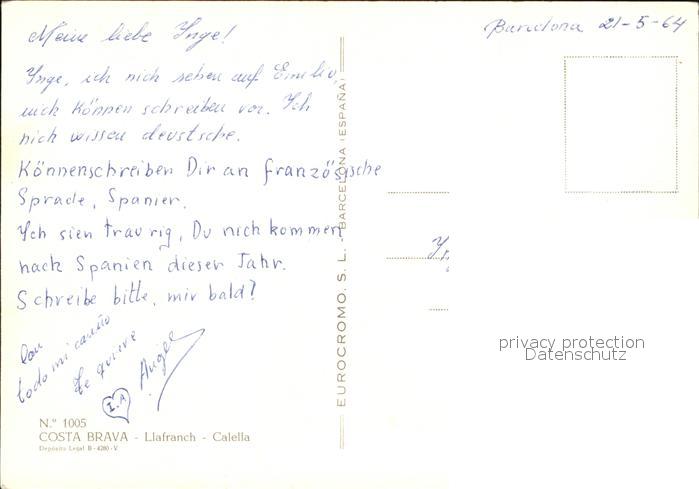 Barcelona 21-5-64
Meine liebe Inge!
Inge, ich nich sehen auf Emilio,
mich können schreiben vor. Ich
nich wissen deustsche.
Könnenschreiben Dir an französische
Sprade, Spanier.
Ich sien traurig, Du nich kommen
nach Spanien dieser Jahr.
Schreibe bitte, mir bald?
Con
todo mi cariño
te quiere
Angel
I.A
N.º 1005
COSTA BRAVA - Llafranch - Calella
Depósito Legal B - 4280 - V
EUROCROMO, S. L. - BARCELONA (ESPAÑA)
privacy protection
Datenschutz